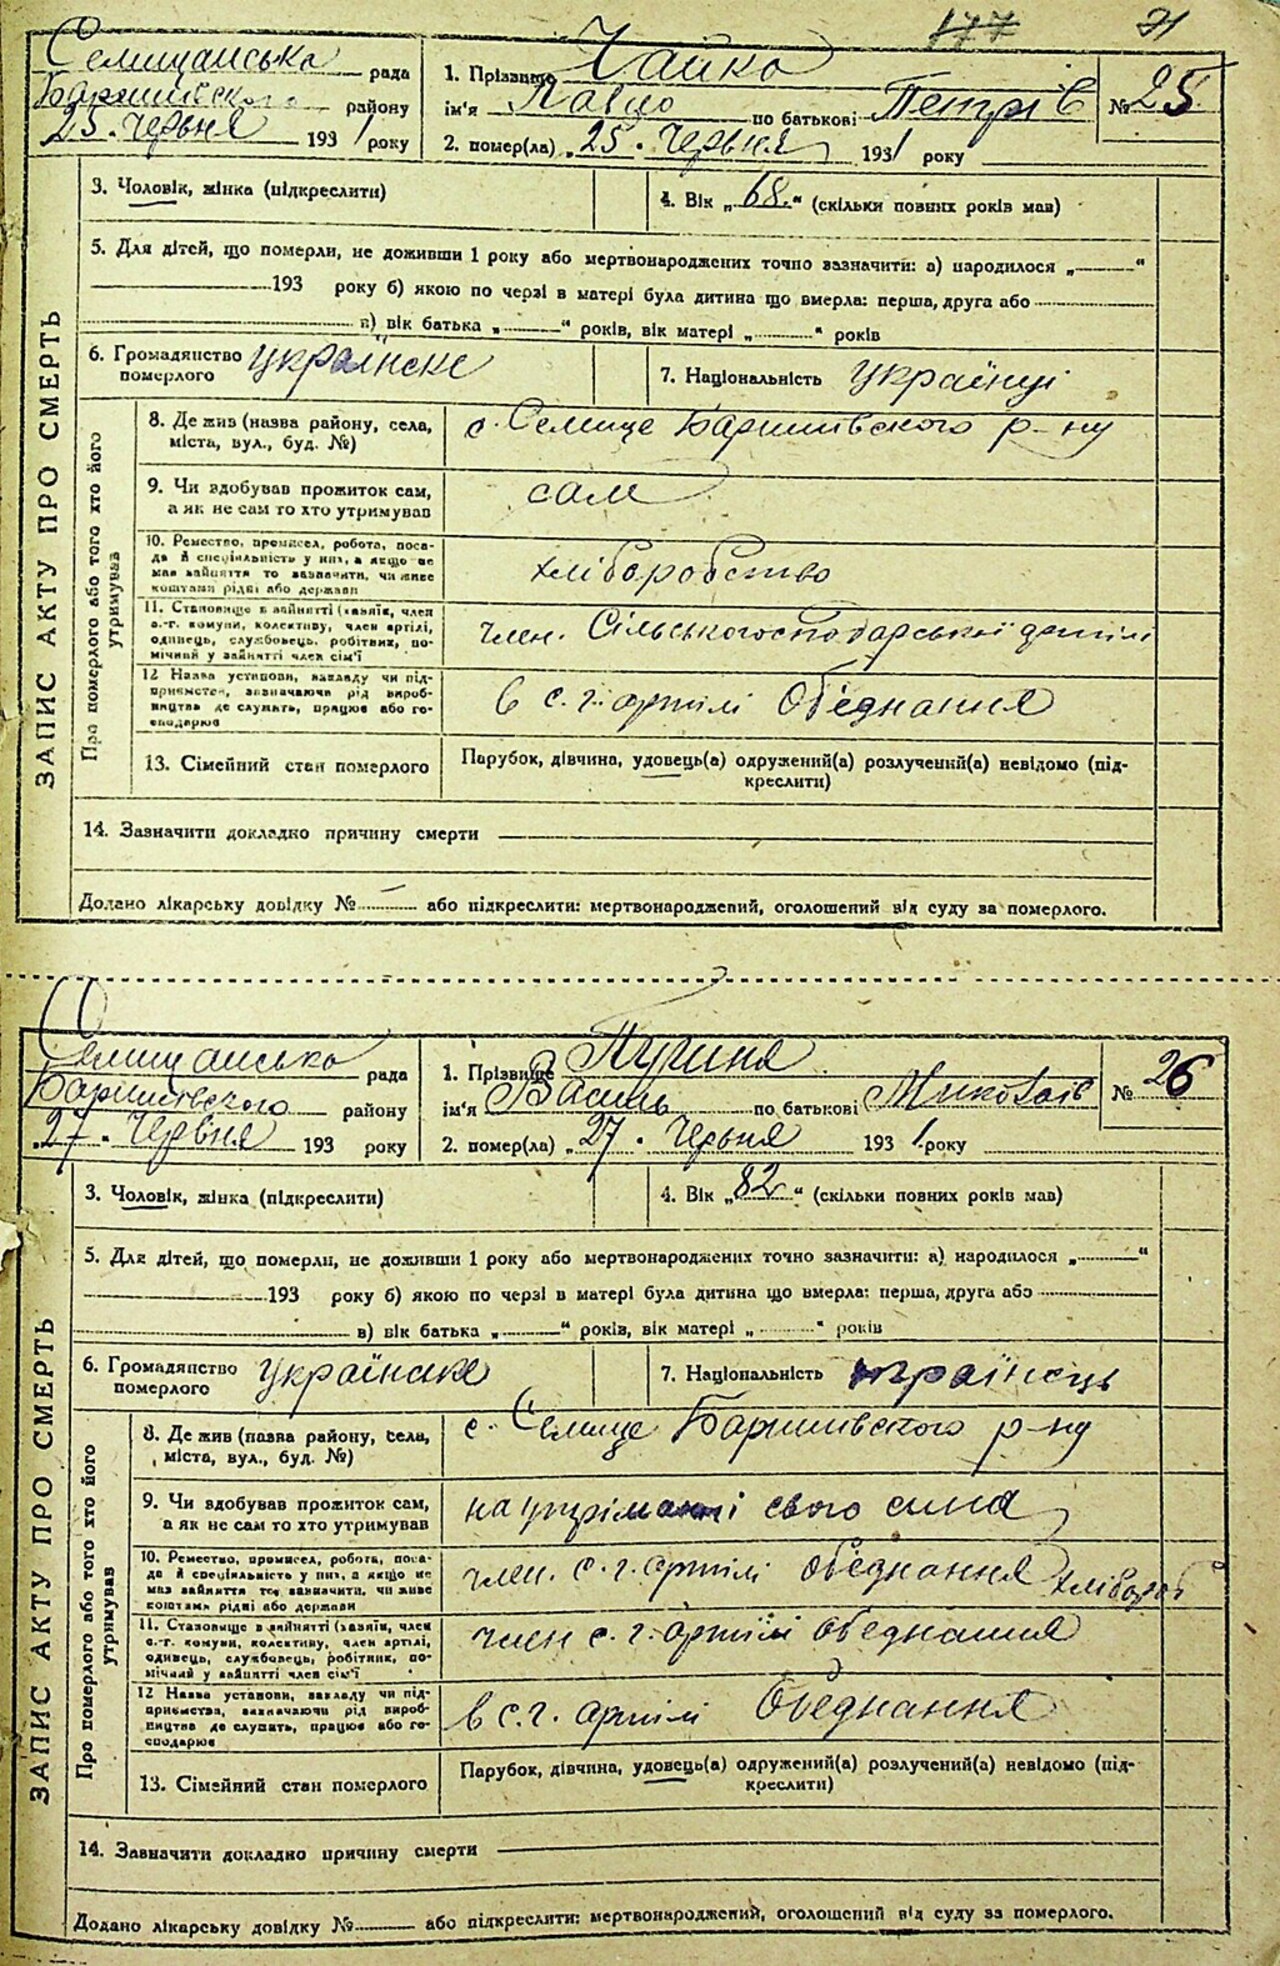 177 71
Селищанська рада
Баришівского району
25. Червня 1931 року
1. Прізвище Чайка
ім'я Павло по батькові Петрів
2. помер(ла) „25. Червня 1931 року
№ 25
3. Чоловік, жінка (підкреслити)
4. Вік „68.“ (скільки повних років мав)
5. Для дітей, що померли, не доживши 1 року або мертвонароджених точно зазначити: а) народилося „ “
193 року б) якою по черзі в матері була дитина що вмерла: перша, друга або
в) вік батька „ “ років, вік матері „ “ років
6. Громадянство померлого українске
7. Національність українці
ЗАПИС АКТУ ПРО СМЕРТЬ
Про померлого або того хто його утримував
8. Де жив (назва району, села,
міста, вул., буд. №)
с. Селище Баришівского р-ну
9. Чи здобував прожиток сам,
а як не сам то хто утримував
сам
10. Ремество, промисел, робота, поса-
да й спеціяльність у них, а якщо не
мав зайняття то зазначити, чи живе
коштами рідні або держави
хліборобство
11. Становище в зайнятті (хазяїн, член
с.-г. комуни, колективу, член артілі,
одинець, службовець, робітник, по-
мічний у зайнятті член сім'ї
член. Сільськогосподарської артілі
12 Назва установи, закладу чи під-
приємства, зазначаючи рід вироб-
ництва де служить, працює або го-
сподарює
в с. г. артілі Обєднання
13. Сімейний стан померлого
Парубок, дівчина, удовець(а) одружений(а) розлучений(а) невідомо (під-
креслити)
14. Зазначити докладно причину смерти
Додано лікарську довідку № або підкреслити: мертвонароджений, оголошений від суду за померлого.
Селищансько рада
Баришівского району
„27. Червня 193 року
1. Прізвище
ім'я Василь по батькові Миколаїв
2. помер(ла) „27. Червня 1931. року
№ 26
3. Чоловік, жінка (підкреслити)
4. Вік „82“ (скільки повних років мав)
5. Для дітей, що померли, не доживши 1 року або мертвонароджених точно зазначити: а) народилося „ “
193 року б) якою по черзі в матері була дитина що вмерла: перша, друга або
в) вік батька „ “ років, вік матері „ “ років
6. Громадянство померлого українске
7. Національність українець
ЗАПИС АКТУ ПРО СМЕРТЬ
Про померлого або того хто його утримував
8. Де жив (назва району, села,
міста, вул., буд. №)
с. Селище Баришівского р-ну
9. Чи здобував прожиток сам,
а як не сам то хто утримував
на утріманні свого сина
10. Ремество, промисел, робота, поса-
да й спеціяльність у них, а якщо не
мав зайняття то зазначити, чи живе
коштами рідні або держави
член. с. г. артілі Обєднання хлібороб
11. Становище в зайнятті (хазяїн, член
с.-г. комуни, колективу, член артілі,
одинець, службовець, робітник, по-
мічний у зайнятті член сім'ї
член с. г. артілі Обєднання
12 Назва установи, закладу чи під-
приємства, зазначаючи рід вироб-
ництва де служить, працює або го-
сподарює
в с. г. артілі Обєднання
13. Сімейний стан померлого
Парубок, дівчина, удовець(а) одружений(а) розлучений(а) невідомо (під-
креслити)
14. Зазначити докладно причину смерти
Додано лікарську довідку № або підкреслити: мертвонароджений, оголошений від суду за померлого.